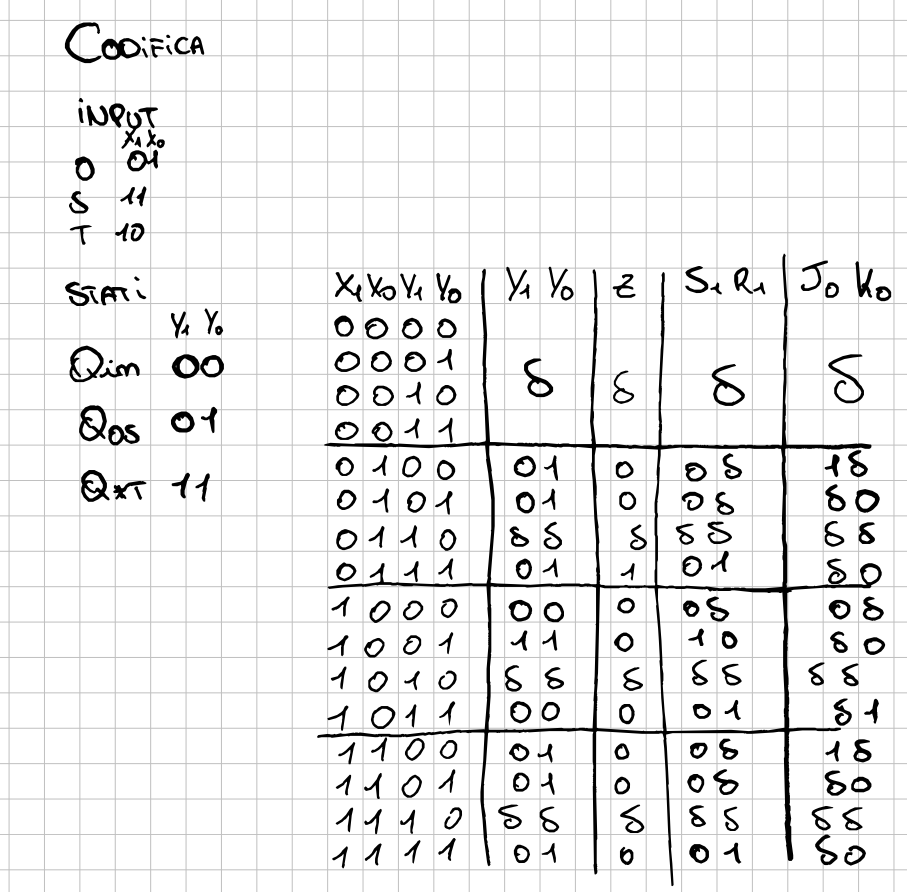 CODiFiCA
iNPUT
X₁ X₀
O 01
S 11
T 10
STATi
Y₁ Y₀
Qin 00
Qos 01
QxT 11
X₁ X₀ Y₁ Y₀ Y₁ Y₀ Z S₁ R₁ J₀ K₀
0 0 0 0
0 0 0 1
0 0 1 0
δ δ δ δ
0 0 1 1
0 1 0 0 0 1 0 0 δ 1 δ
0 1 0 1 0 1 0 0 δ δ 0
0 1 1 0 δ δ δ δ δ δ δ
0 1 1 1 0 1 1 0 1 δ 0
1 0 0 0 0 0 0 0 δ 0 δ
1 0 0 1 1 1 0 1 0 δ 0
1 0 1 0 δ δ δ δ δ δ δ
1 0 1 1 0 0 0 0 1 δ 1
1 1 0 0 0 1 0 0 δ 1 δ
1 1 0 1 0 1 0 0 δ δ 0
1 1 1 0 δ δ δ δ δ δ δ
1 1 1 1 0 1 0 0 1 δ 0